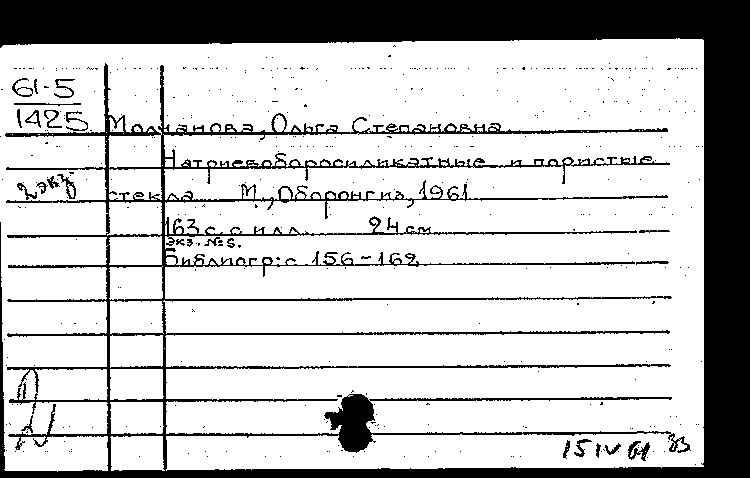 61-5
1425
Молчанова, Ольга Степановна.
Натриевоборосиликатные и пористые
2 экз
стекла. М., Оборонгиз, 1961
163 с. с илл. 24 см
экз. № 6.
Библиогр: с 156-162
15 IV 61